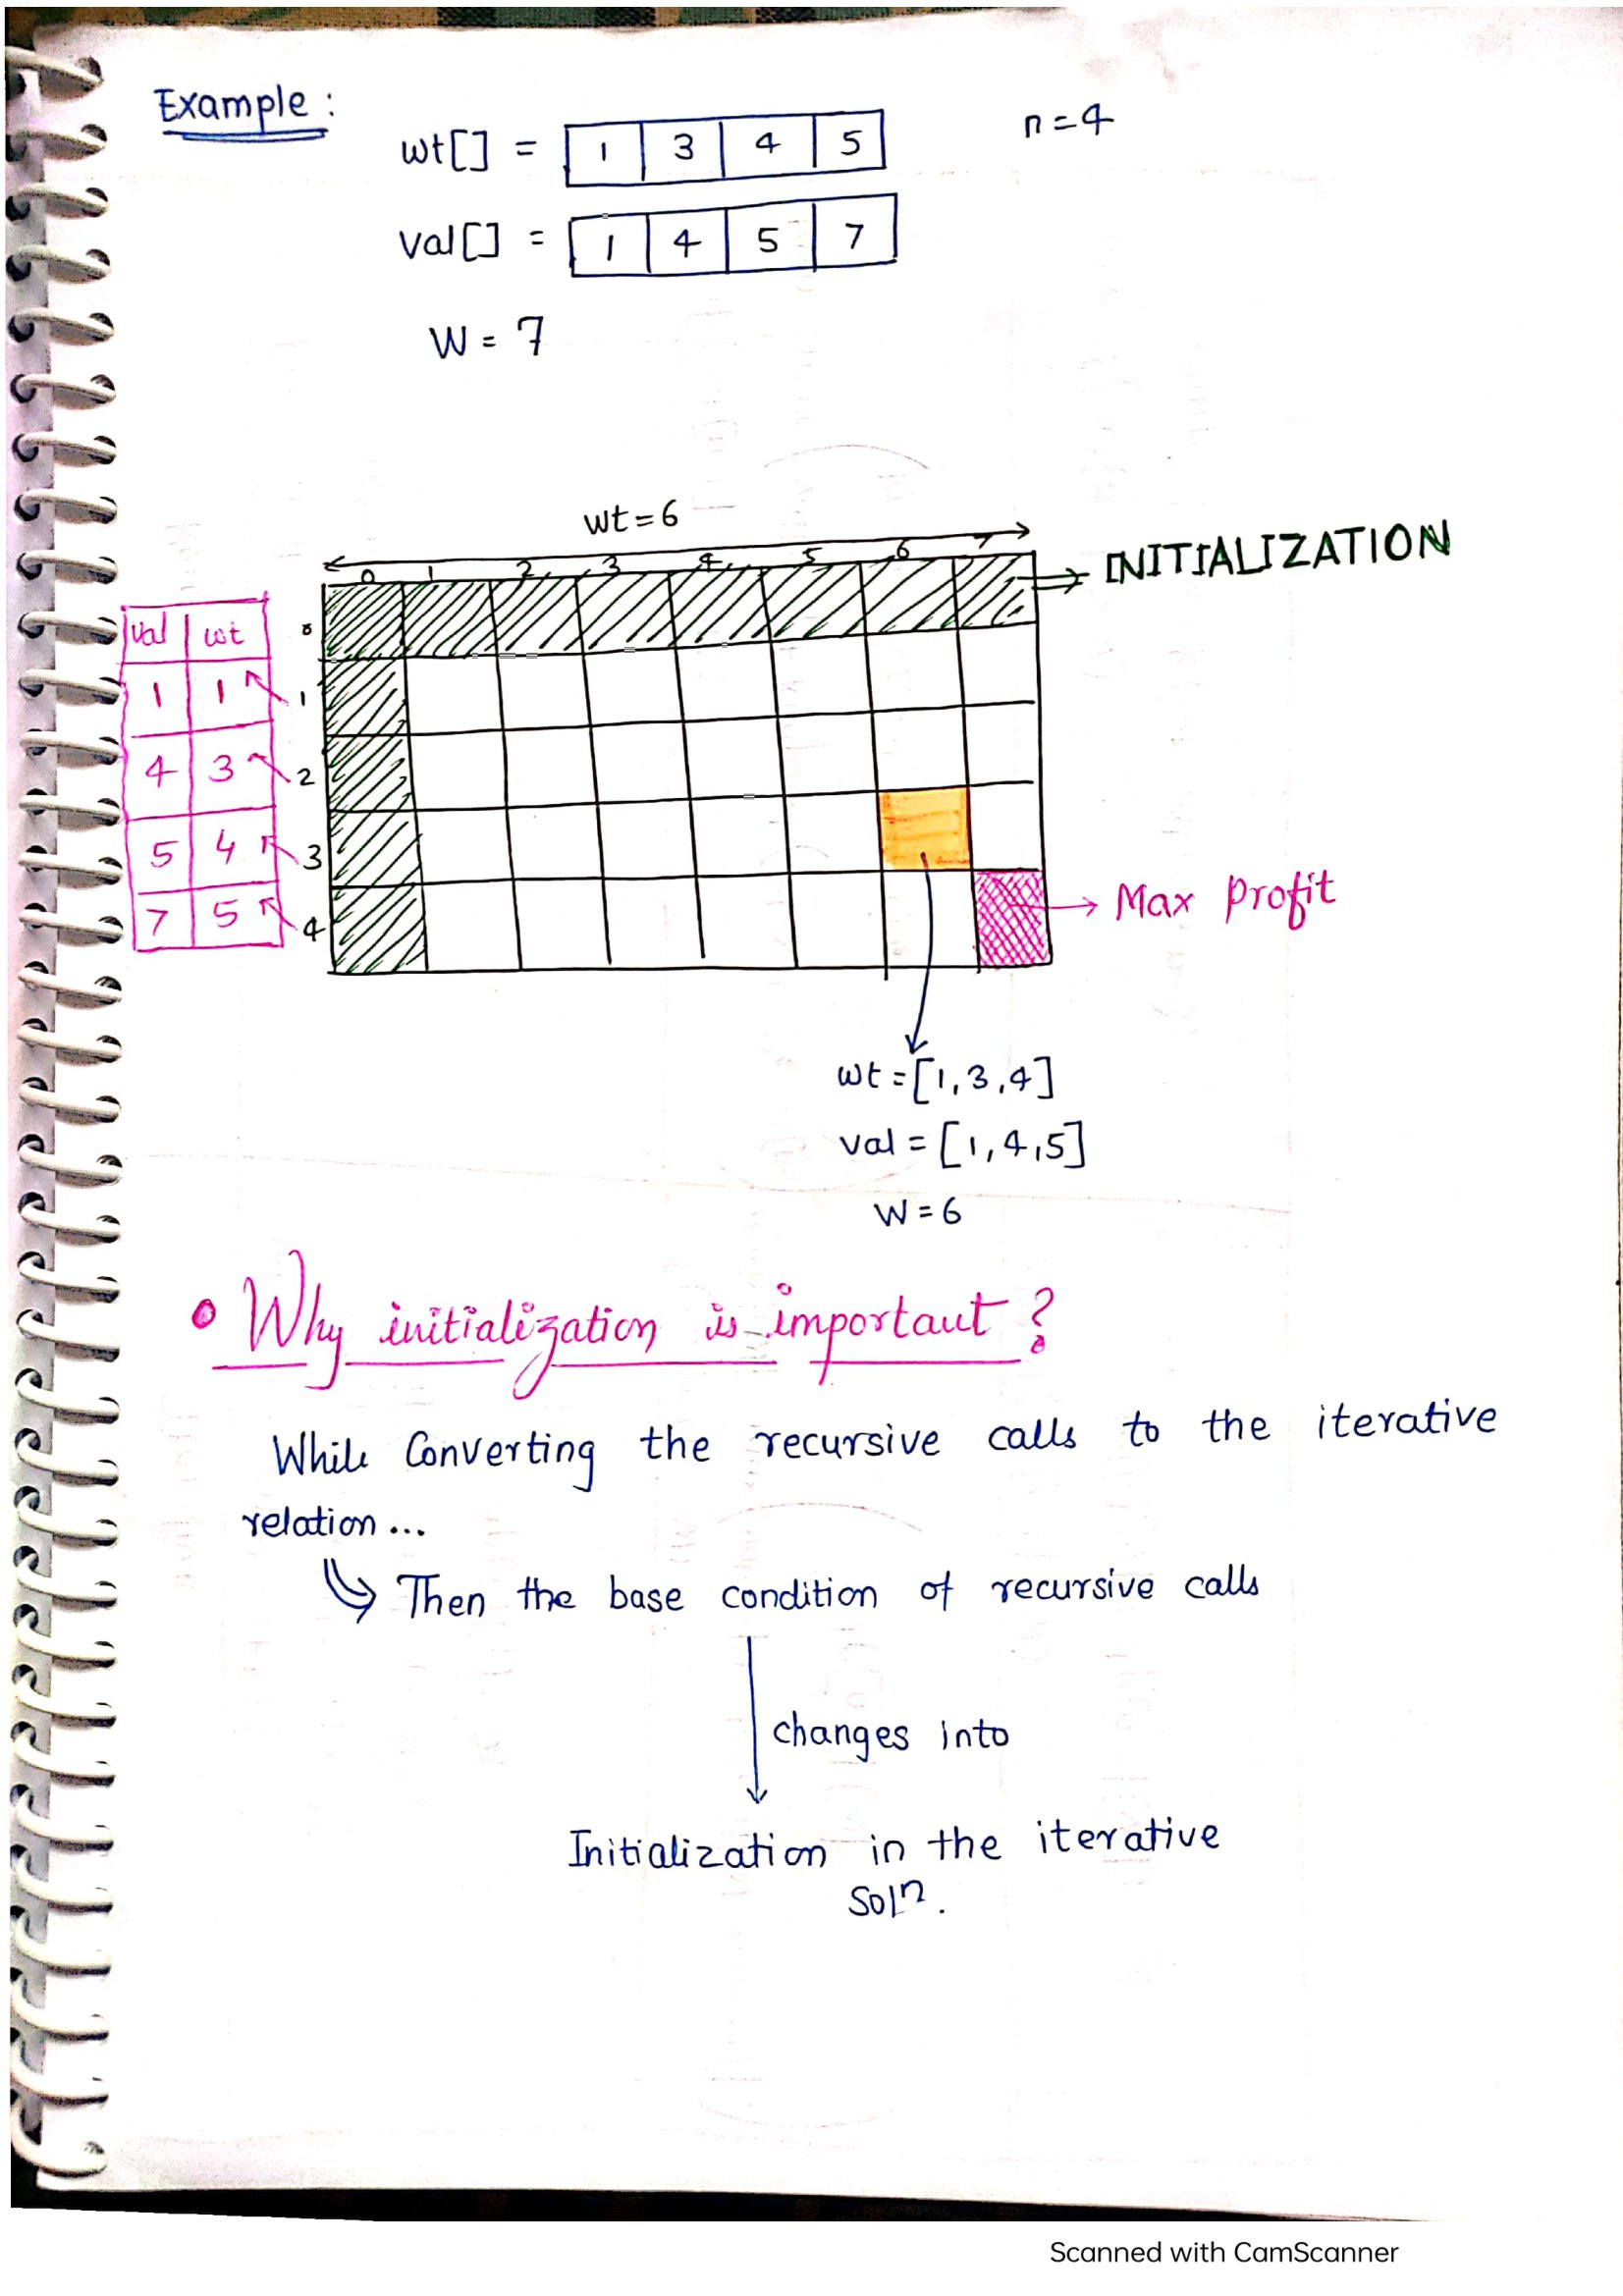 Example :
wt[] = 1 3 4 5
n=4
val[] = 1 4 5 7
W = 7
wt=6
0 1 2 3 4 5 6 7
INITIALIZATION
val wt 0
1 1 1
4 3 2
5 4 3
7 5 4
Max Profit
wt=[1,3,4]
val=[1,4,5]
W=6
• Why initialization is important?
While Converting the recursive calls to the iterative
relation...
Then the base condition of recursive calls
changes into
Initialization in the iterative
Soln.
Scanned with CamScanner